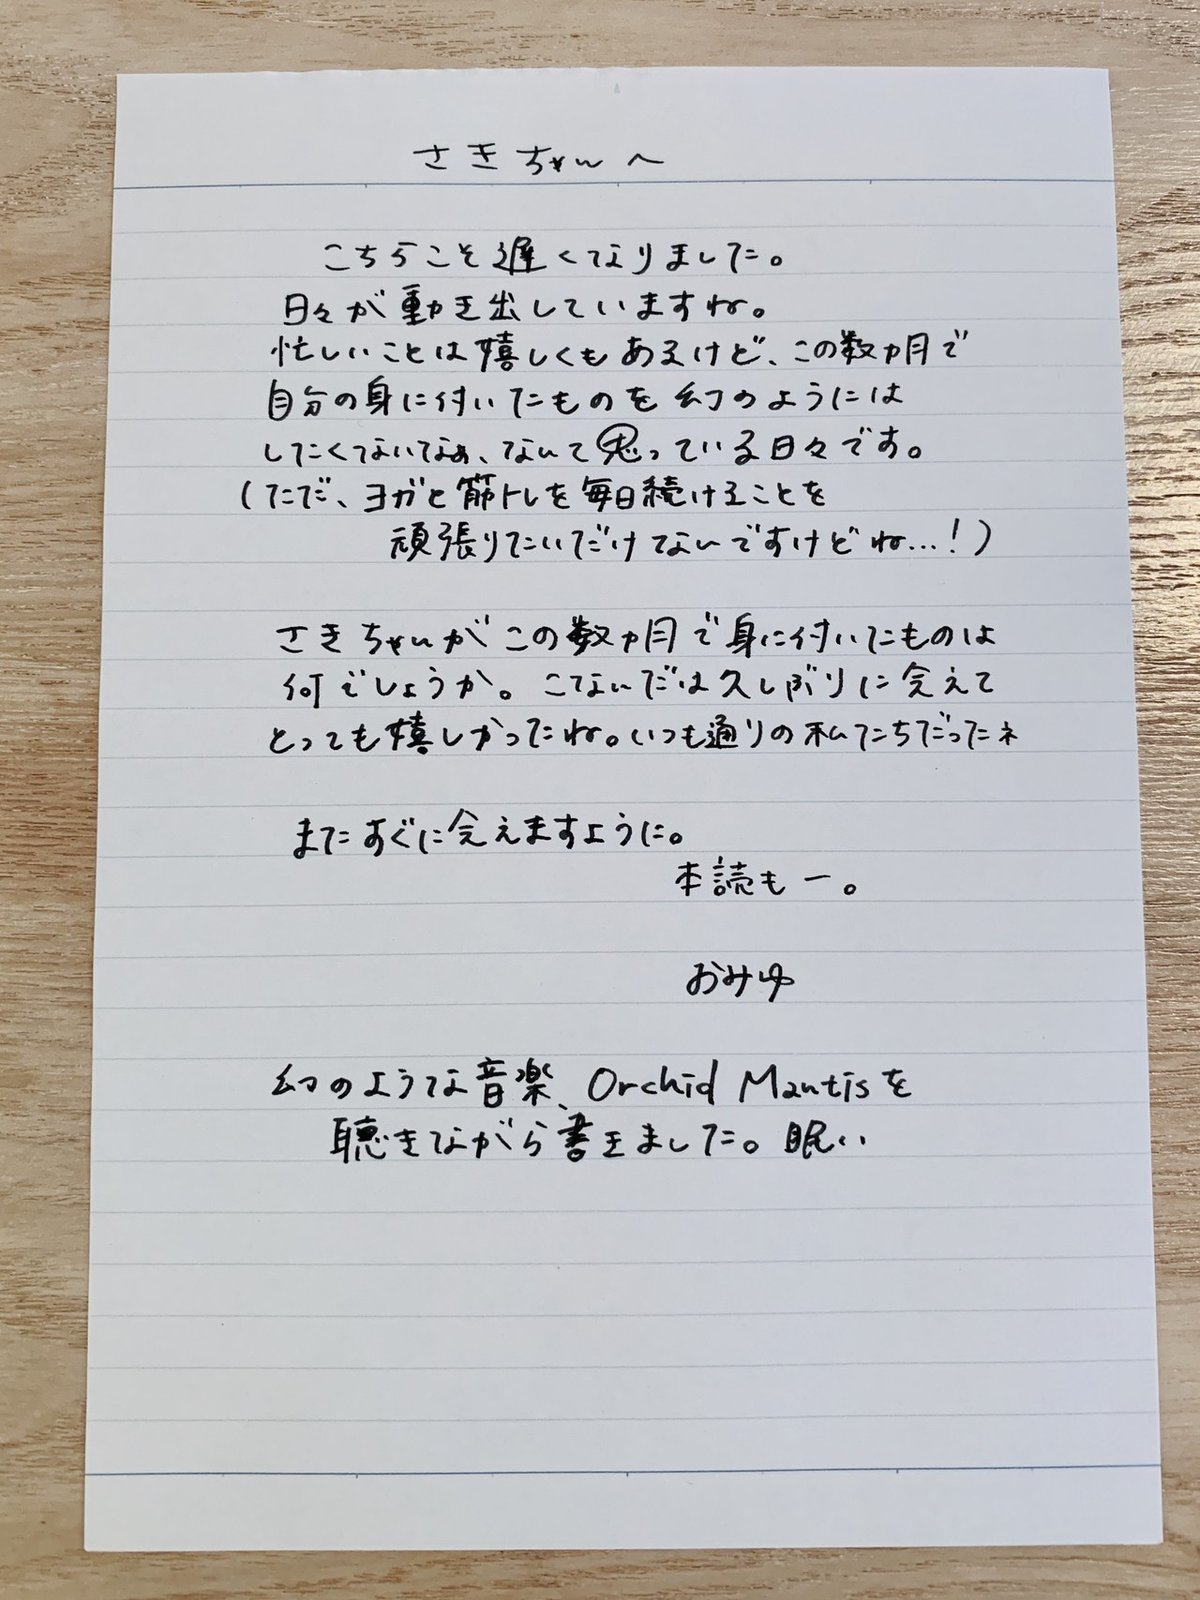 さきちゃんへ
こちらこそ遅くなりました。
日々が動き出していますね。
忙しいことは嬉しくもあるけど、この数ヵ月で
自分の身に付いたものを幻のようには
したくないなぁ、なんて思っている日々です。
(ただ、ヨガと筋トレを毎日続けることを
頑張りたいだけなんですけどね…!)
さきちゃんがこの数ヵ月で身に付いたものは
何でしょうか。こないだは久しぶりに会えて
とっても嬉しかったね。いつも通りの私たちだったネ
またすぐに会えますように。
本読もー。
おみゆ
幻のような音楽、Orchid Mantisを
聴きながら書きました。眠い